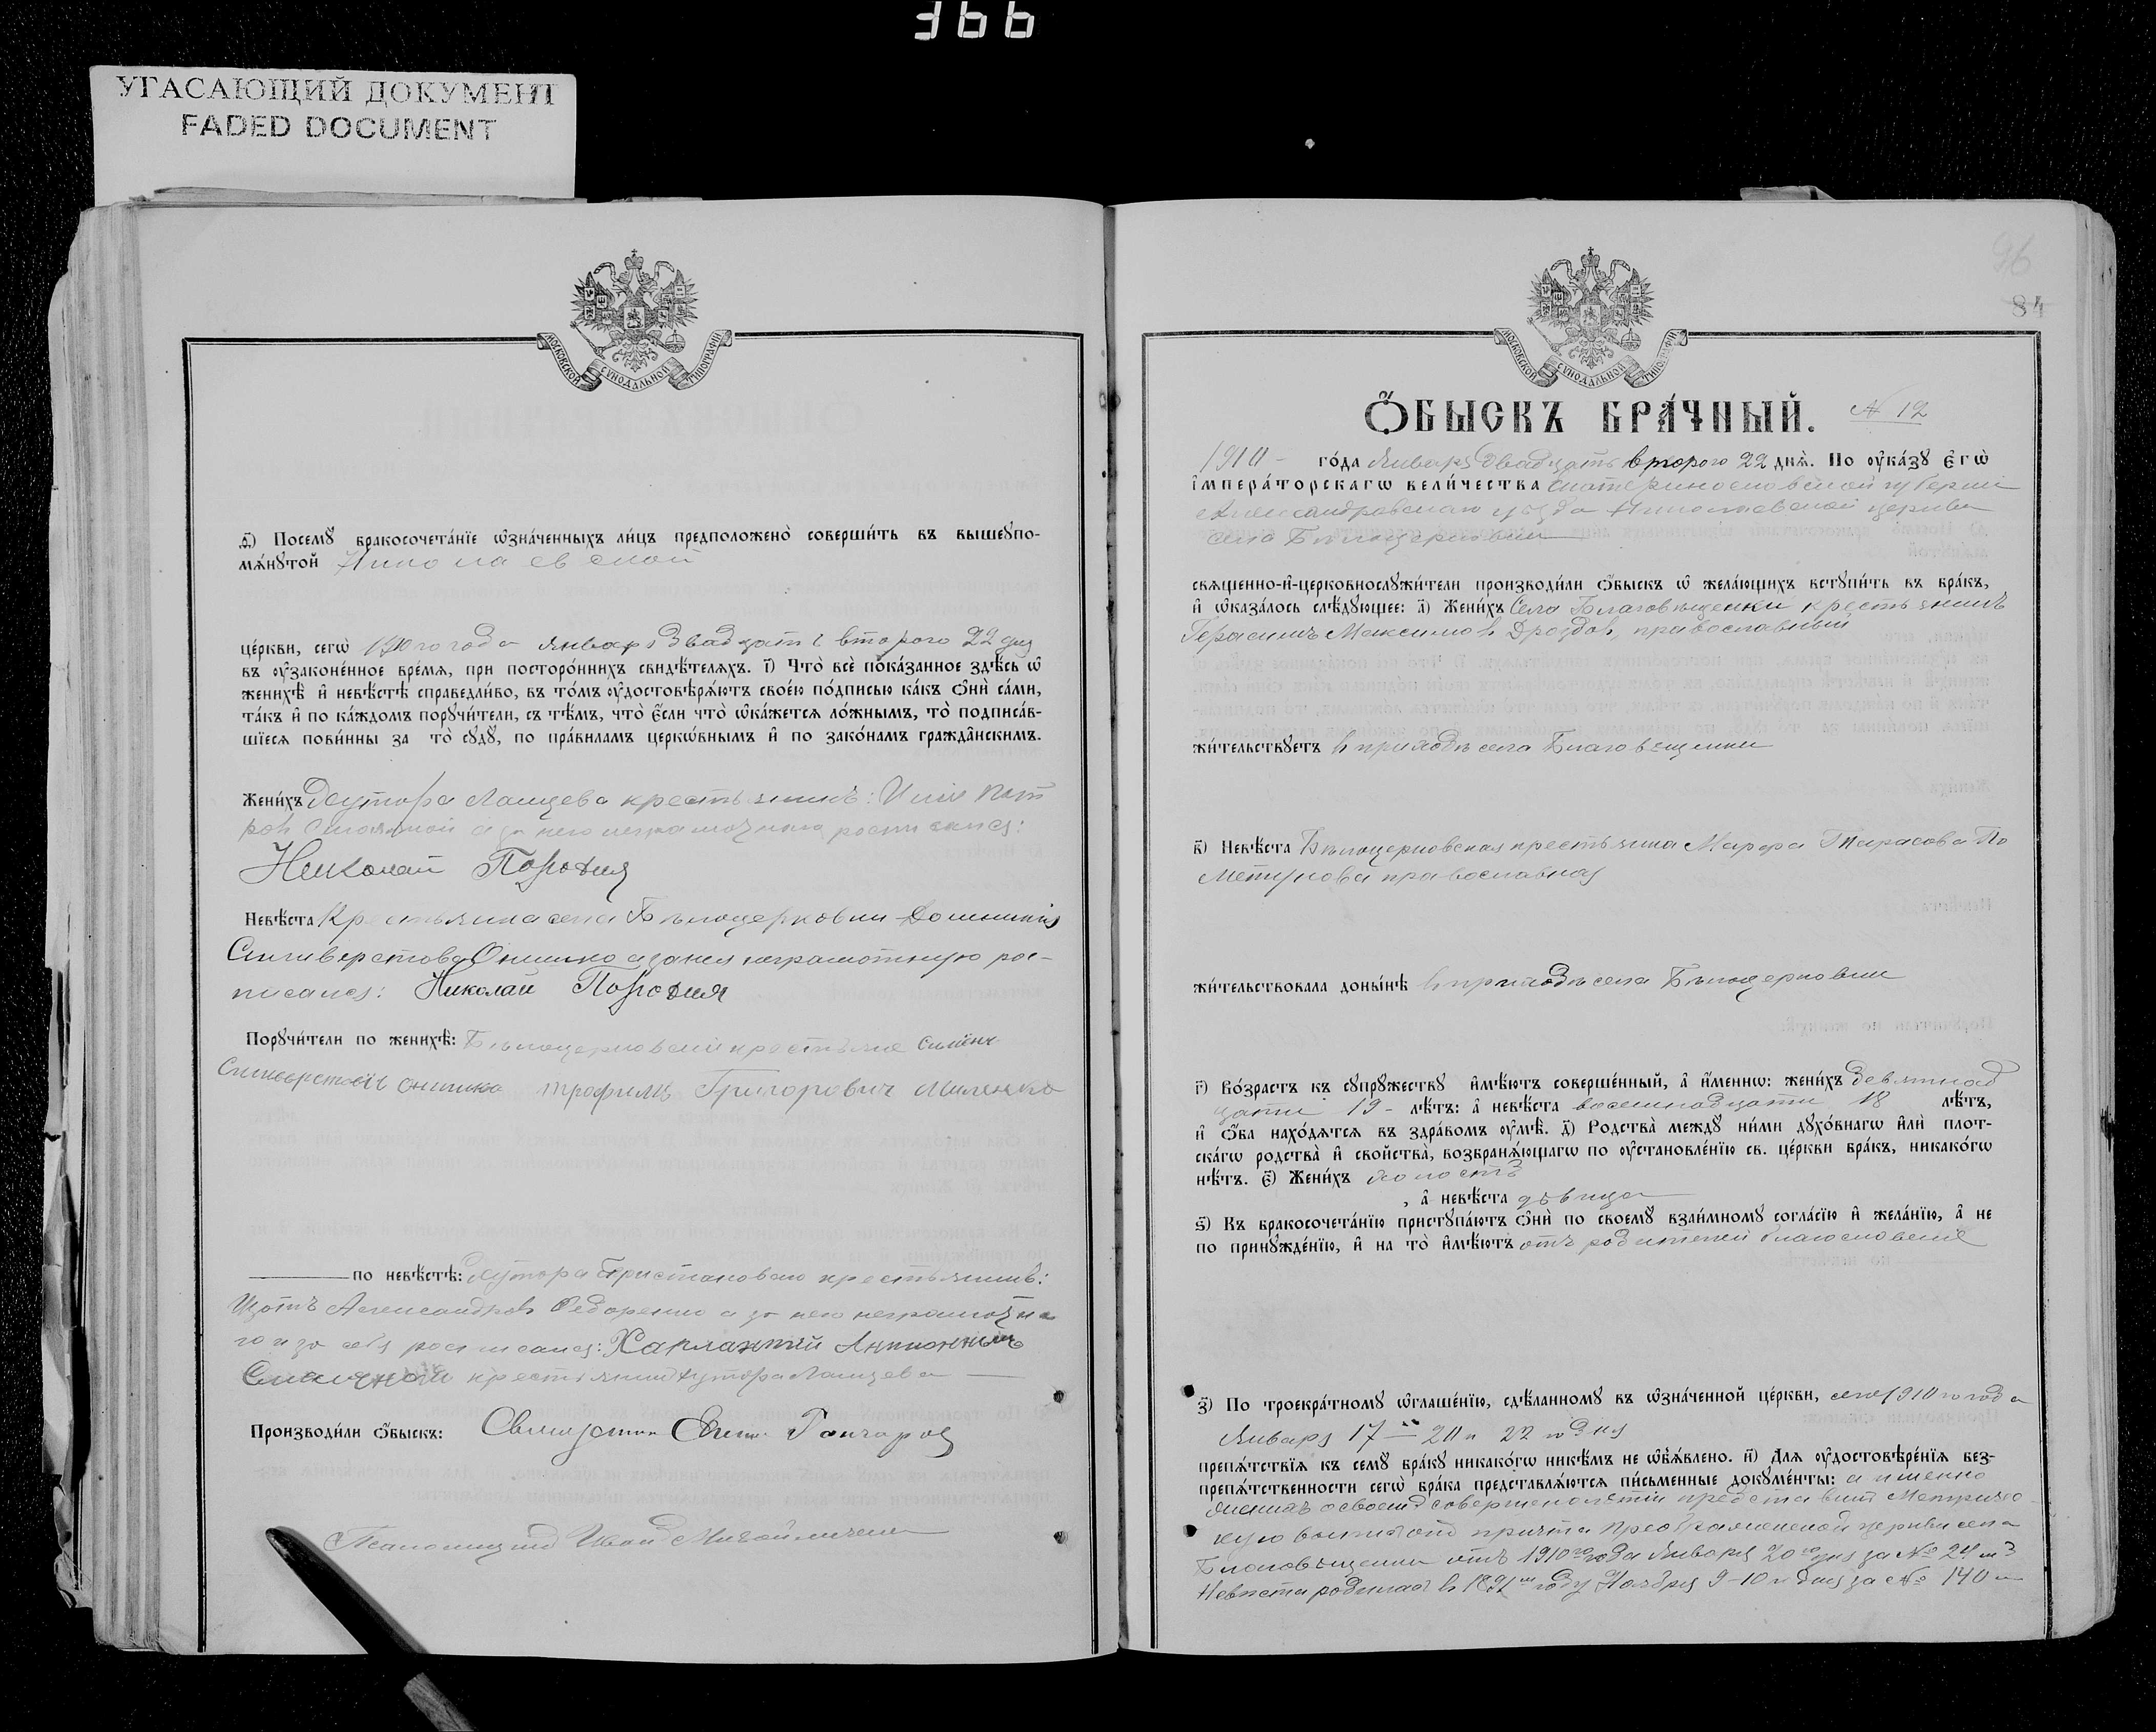 366
УГАСАЮЩИЙ ДОКУМЕНТ
FADED DOCUMENT
МОСКОВСКОЙ СѴНОДАЛЬНОЙ ТИПОГРАФІИ
Посемꙋ̀ бракосочета́нїе ѡ҆зна́ченныхъ ли́цъ предположено̀ соверши́ть въ вышеꙋпо-
мѧ́нꙋтой Николаевской
це́ркви, сегѡ̀ 1910 го года Января двадцать второго 22 дня
въ ᲂу҆законе́нное вре́мѧ, при посторо́ннихъ свидѣ́телѧхъ. і҃) Что̀ всѐ пока́занное здѣ́сь ѡ҆
женихѣ̀ и҆ невѣ́стѣ справедли́во, въ то́мъ ᲂу҆достовѣрѧ́ютъ свое́ю по́дписью ка́къ ѻ҆нѝ са́ми,
та́къ и҆ по ка́ждомъ порꙋчи́тели, съ тѣ́мъ, что̀ є҆́сли что̀ ѡ҆ка́жетсѧ ло́жнымъ, то̀ подписа́в-
шїесѧ пови́нны за то̀ сꙋдꙋ̀, по пра́виламъ церкѡ́внымъ и҆ по зако́намъ гражда̂нскимъ.
Жени́хъ Хутора Ланцева крестьянинъ:
а за него неграмотнаго росписался:
Николай
Невѣ́ста Крестьянка села Бѣлоцерковки Домникія
Силиверстова Онишко а за нея неграмотную рос-
писался: Николай
Порꙋчи́тели по женихѣ̀: Бѣлоцерковскіе крестьяне Симіонъ
Онишко Трофимъ Григоровичъ
по невѣ́стѣ: Хутора крестьянинъ:
Изотъ Александровъ Федоренко а за него неграмотна
го и за себя росписался: Харлампій
крестьянинъ хутора Ланцева
Производи́ли ѻ҆́быскъ: Священникъ Гончаровъ
Псаломщикъ Иванъ Михайличенко
96
84
МОСКОВСКОЙ СѴНОДАЛЬНОЙ ТИПОГРАФІИ
Ѻ҆́БЫСКЪ БРА́ЧНЫЙ. № 12
1910 го́да Января двадцать второго 22 днѧ̀. По ᲂу҆ка́зꙋ Є҆гѡ̀
І҆мпера́торскагѡ вели́чества Екатеринославской губерніи
Александровскаго уѣзда Николаевской церкви
села Бѣлоцерковки
свѧще́нно-и҆-церковнослꙋжи́тели производи́ли ѻ҆́быскъ ѡ҆ жела́ющихъ встꙋпи́ть въ бра́къ,
и҆ ѡ҆каза́лось слѣ́дꙋющее: а҃) Жени́хъ Села Благовѣщенки крестьянинъ
Герасимъ Максимовъ Дроздовъ, православный
жи́тельствꙋетъ въ приходѣ села Благовѣщенки
в҃) Невѣ́ста Бѣлоцерковская крестьянка Марфа Тарасова По
православная
жи́тельствовала доны́нѣ въ приходѣ села Бѣлоцерковки
г҃) Во́зрастъ къ сꙋпрꙋ́жествꙋ и҆мѣ́ютъ соверше́нный, а҆ и҆́меннѡ: жени́хъ девятнад
цати 19 - лѣ́тъ: а҆ невѣ́ста восемнадцати 18 лѣ́тъ,
и҆ ѻ҆́ба нахо́дѧтсѧ въ здра́вомъ ᲂу҆мѣ̀. д҃) Родства̀ междꙋ̀ ни́ми дꙋхо́внагѡ и҆лѝ плот-
ска́гѡ родства̀ и҆ сво́йства, возбранѧ́ющагѡ по ᲂу҆становле́нїю св. це́ркви бра́къ, никако́гѡ
нѣ́тъ. є҃) Жени́хъ холостъ
, а҆ невѣ́ста дѣвица
ѕ҃) Къ бракосочета́нїю пристꙋпа́ютъ ѻ҆нѝ по своемꙋ̀ взаи́мномꙋ согла́сїю и҆ жела́нїю, а҆ не
по принꙋжде́нїю, и҆ на то̀ и҆мѣ́ютъ отъ родителей благословеніе
з҃) По троекра́тномꙋ ѡ҆глаше́нїю, сдѣ́ланномꙋ въ ѡ҆зна́ченной це́ркви, сего 1910 го года
Января 17 20 и 22 го дня
препѧ́тствїѧ къ семꙋ̀ бра́кꙋ никако́гѡ никѣ́мъ не ѡ҆б̾ѧ́влено. и҃) Длѧ ᲂу҆достовѣре́нїѧ без-
препѧ́тственности сегѡ̀ бра́ка представлѧ́ютсѧ пи́сьменные докꙋме́нты: а именно
женихъ о своемъ совершеннолѣтіи представилъ Метричес
кую выпись отъ причта Преображенской церкви села
Благовѣщенки отъ 1910 го года Января 20 го дня за № 24 мъ
Невѣста родилась въ 1891 мъ году Ноября 9-10 го дня за № 140 мъ